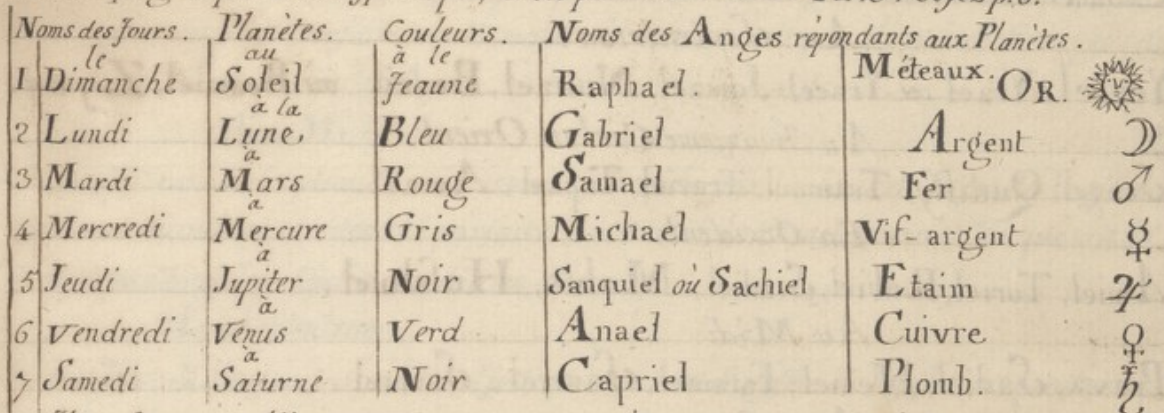 Noms des Jours. Planètes. Couleurs. Noms des Anges répondants aux Planètes.
le au à le Méteaux.
1 Dimanche Soleil Jeaune Raphael. OR. ☉
à la
2 Lundi Lune Bleu Gabriel Argent ☽
à
3 Mardi Mars Rouge Samael Fer ♂
à
4 Mercredi Mercure Gris Michael Vif argent ☿
à
5 Jeudi Jupiter Noir Sanquiel où Sachiel Etaim ♃
à
6 Vendredi Vénus Verd Anael Cuivre ♀
à
7 Samedi Saturne Noir Capriel Plomb. ♄